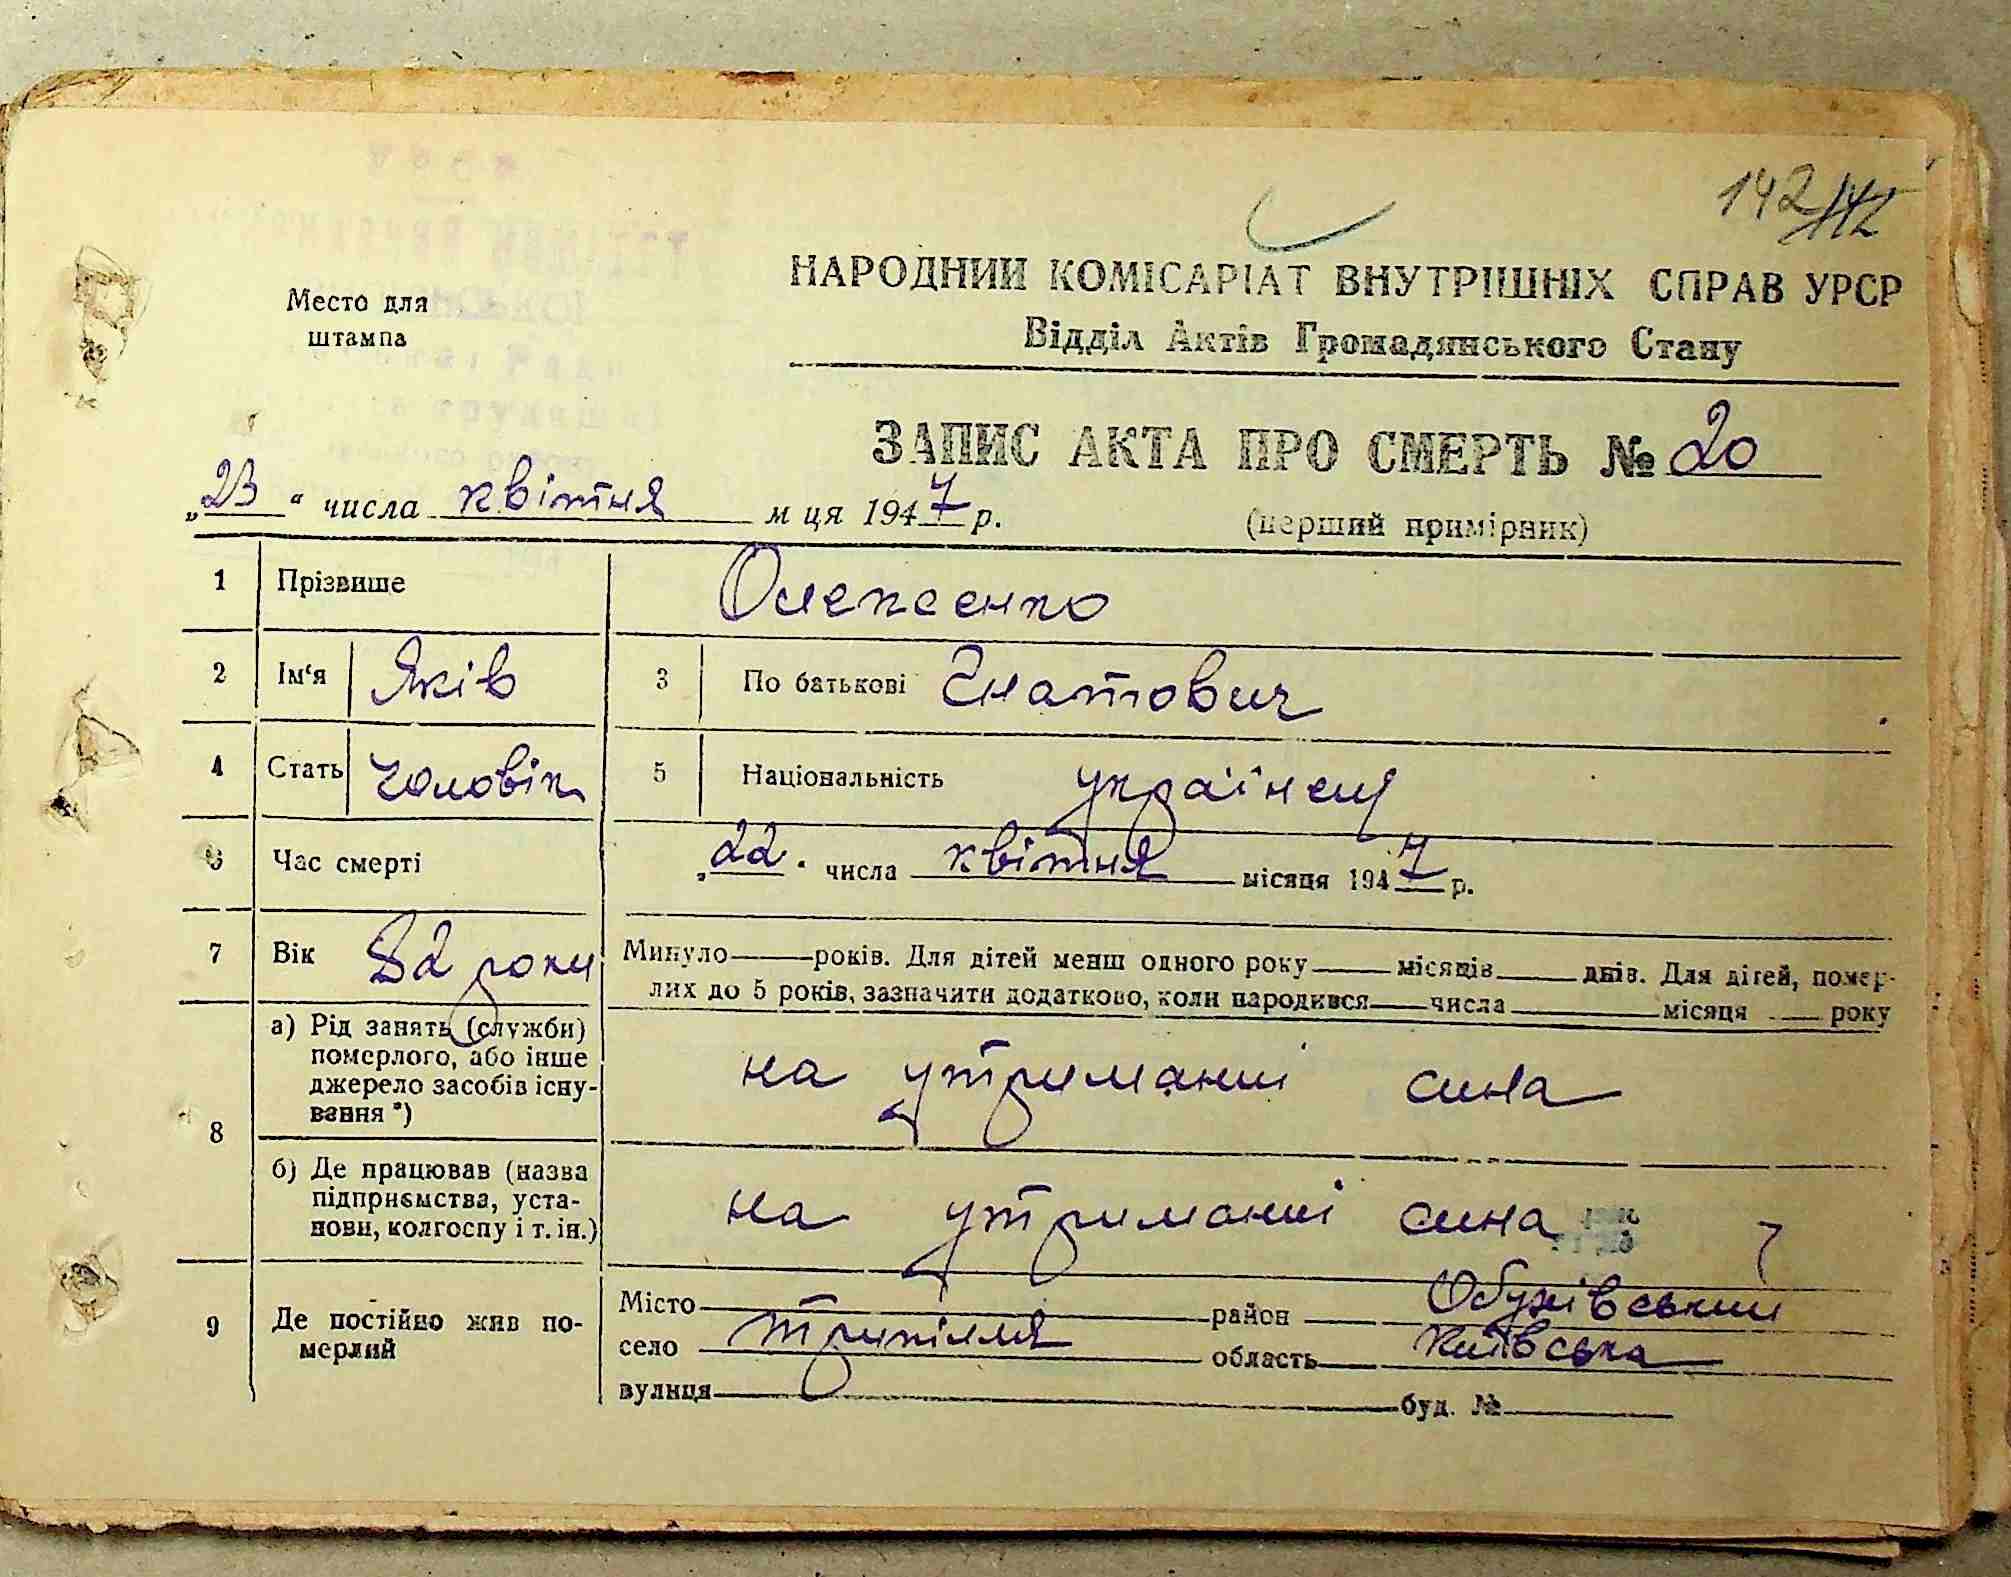 142 142
Место для
штампа
НАРОДНИЙ КОМІСАРІАТ ВНУТРІШНІХ СПРАВ УРСР
Відділ Актів Громадянського Стану
ЗАПИС АКТА ПРО СМЕРТЬ № 20
„23“ числа квітня м ця 1947 р.
(перший примірник)
1 Прізвище Олексенко
2 Ім‘я Яків 3 По батькові Гнатович
4 Стать чоловік 5 Національність українець
6 Час смерті „22“ числа квітня місяця 1947 р.
7 Вік 82 роки Минуло—років. Для дітей менш одного року—місяців—днів. Для дітей, помер-
лих до 5 років, зазначити додатково, коли народився—числа—місяця—року
8
а) Рід занять (служби)
померлого, або інше
джерело засобів існу-
вання *)
на утриманні сина
б) Де працював (назва
підприємства, уста-
нови, колгоспу і т. ін.)
на утриманні сина
9 Де постійно жив по-
мерлий
Місто—район Обухівський
село Трипілля область Київська
вулиця—буд. №